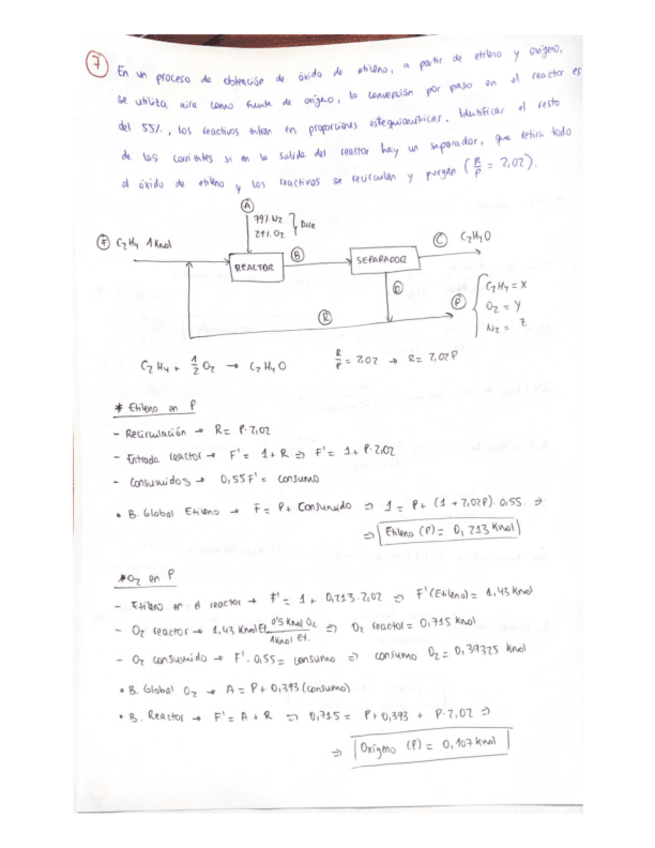 7
En un proceso de obtención de óxido de etileno, a partir de etileno y oxígeno,
se utiliza aire como fuente de oxígeno, la conversión por paso en el reactor es
del 55%, los reactivos entran en proporciones estequiométricas. Identificar el resto
de las corrientes si en la salida del reactor hay un separador, que retira todo
el óxido de etileno y los reactivos se recirculan y purgan (R/P = 2,02).
A
79% N2
21% O2 } Aire
F C2H4 1 Kmol
B
C C2H4O
REACTOR
SEPARADOR
D
P
C2H4 = X
O2 = Y
N2 = Z
R
C2H4 + 1/2 O2 → C2H4O
R/P = 2,02 → R = 2,02P
* Etileno en P
- Recirculación → R = P·2,02
- Entrada reactor → F' = 1 + R ⇒ F' = 1 + P·2,02
- Consumidos → 0,55F' = consumo
• B. Global Etileno → F = P + Consumido ⇒ 1 = P + (1 + 2,02P)·0,55 ⇒
⇒ Etileno (P) = 0,213 Kmol
* O2 en P
- Etileno en el reactor → F' = 1 + 0,213·2,02 ⇒ F' (Etileno) = 1,43 Kmol
- O2 reactor → 1,43 Kmol Et. 0'5 Kmol O2 / 1 Kmol Et. ⇒ O2 reactor = 0,715 Kmol
- O2 consumido → F'·0,55 = consumo ⇒ consumo O2 = 0,39325 Kmol
• B. Global O2 → A = P + 0,393 (consumo)
• B. Reactor → F' = A + R ⇒ 0,715 = P + 0,393 + P·2,02 ⇒
⇒ Oxígeno (P) = 0,107 Kmol